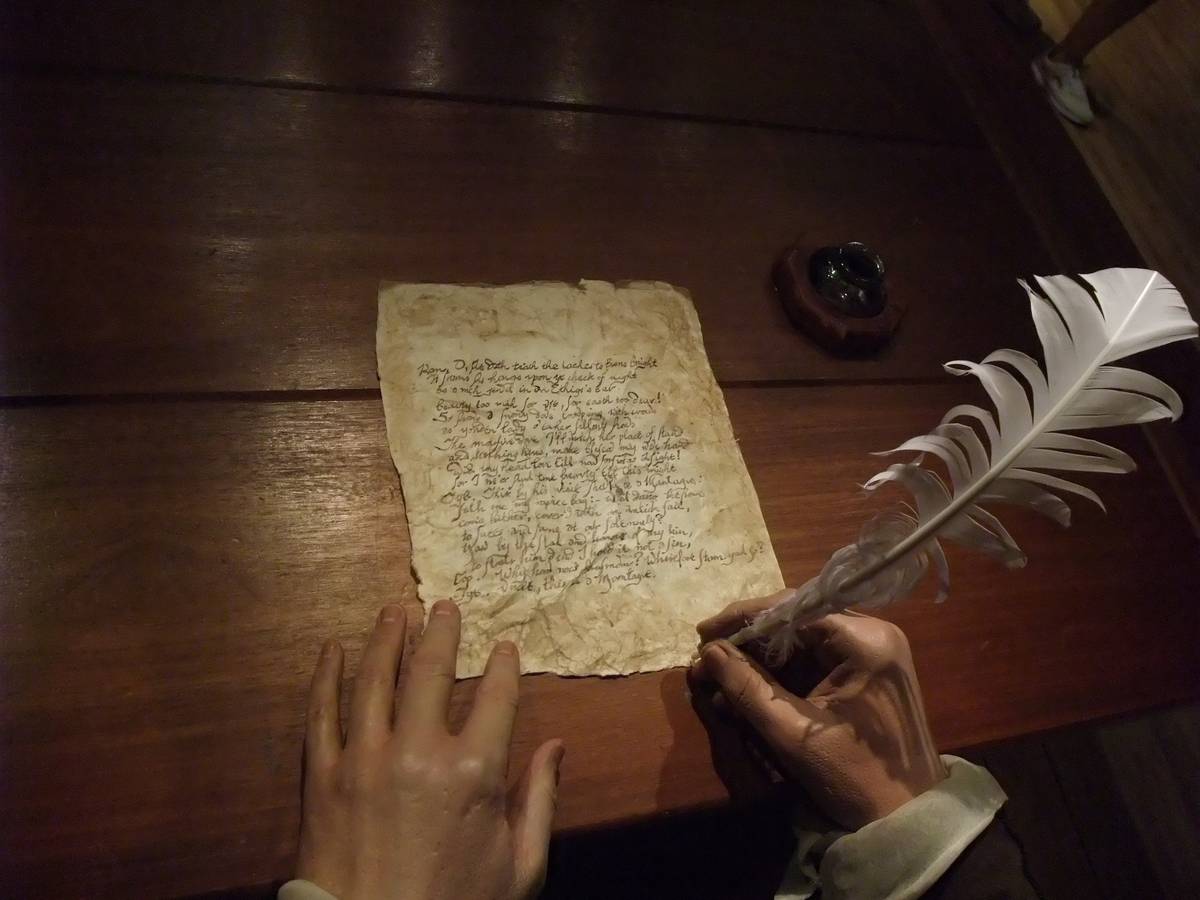 Rom, O, she doth teach the torches to burne bright
It seems she hangs upon ye cheek of night
as a rich jewel in an Ethiop's ear
beauty too rich for use, for earth too dear!
So shows a snowy dove trooping with crows
as yonder lady o'er her fellows shows
The measure done I'll watch her place of stand
and, touching hers, make blessed my rude hand
Did my heart love till now forswear it sight!
for I ne'er saw true beauty till this night
Tyb. This by his voice should be a Montague:
fetch me my rapier boy:- what dares he slave
come hither, cover'd with an antick face,
to fleer and scorne at our solemnity?
Now by the stock and honour of my kin,
to strike him dead I hold it not a sin,
Cap. Why how now kinsman? Wherefore storm you so?
Tyb. Uncle, this is a Montague.